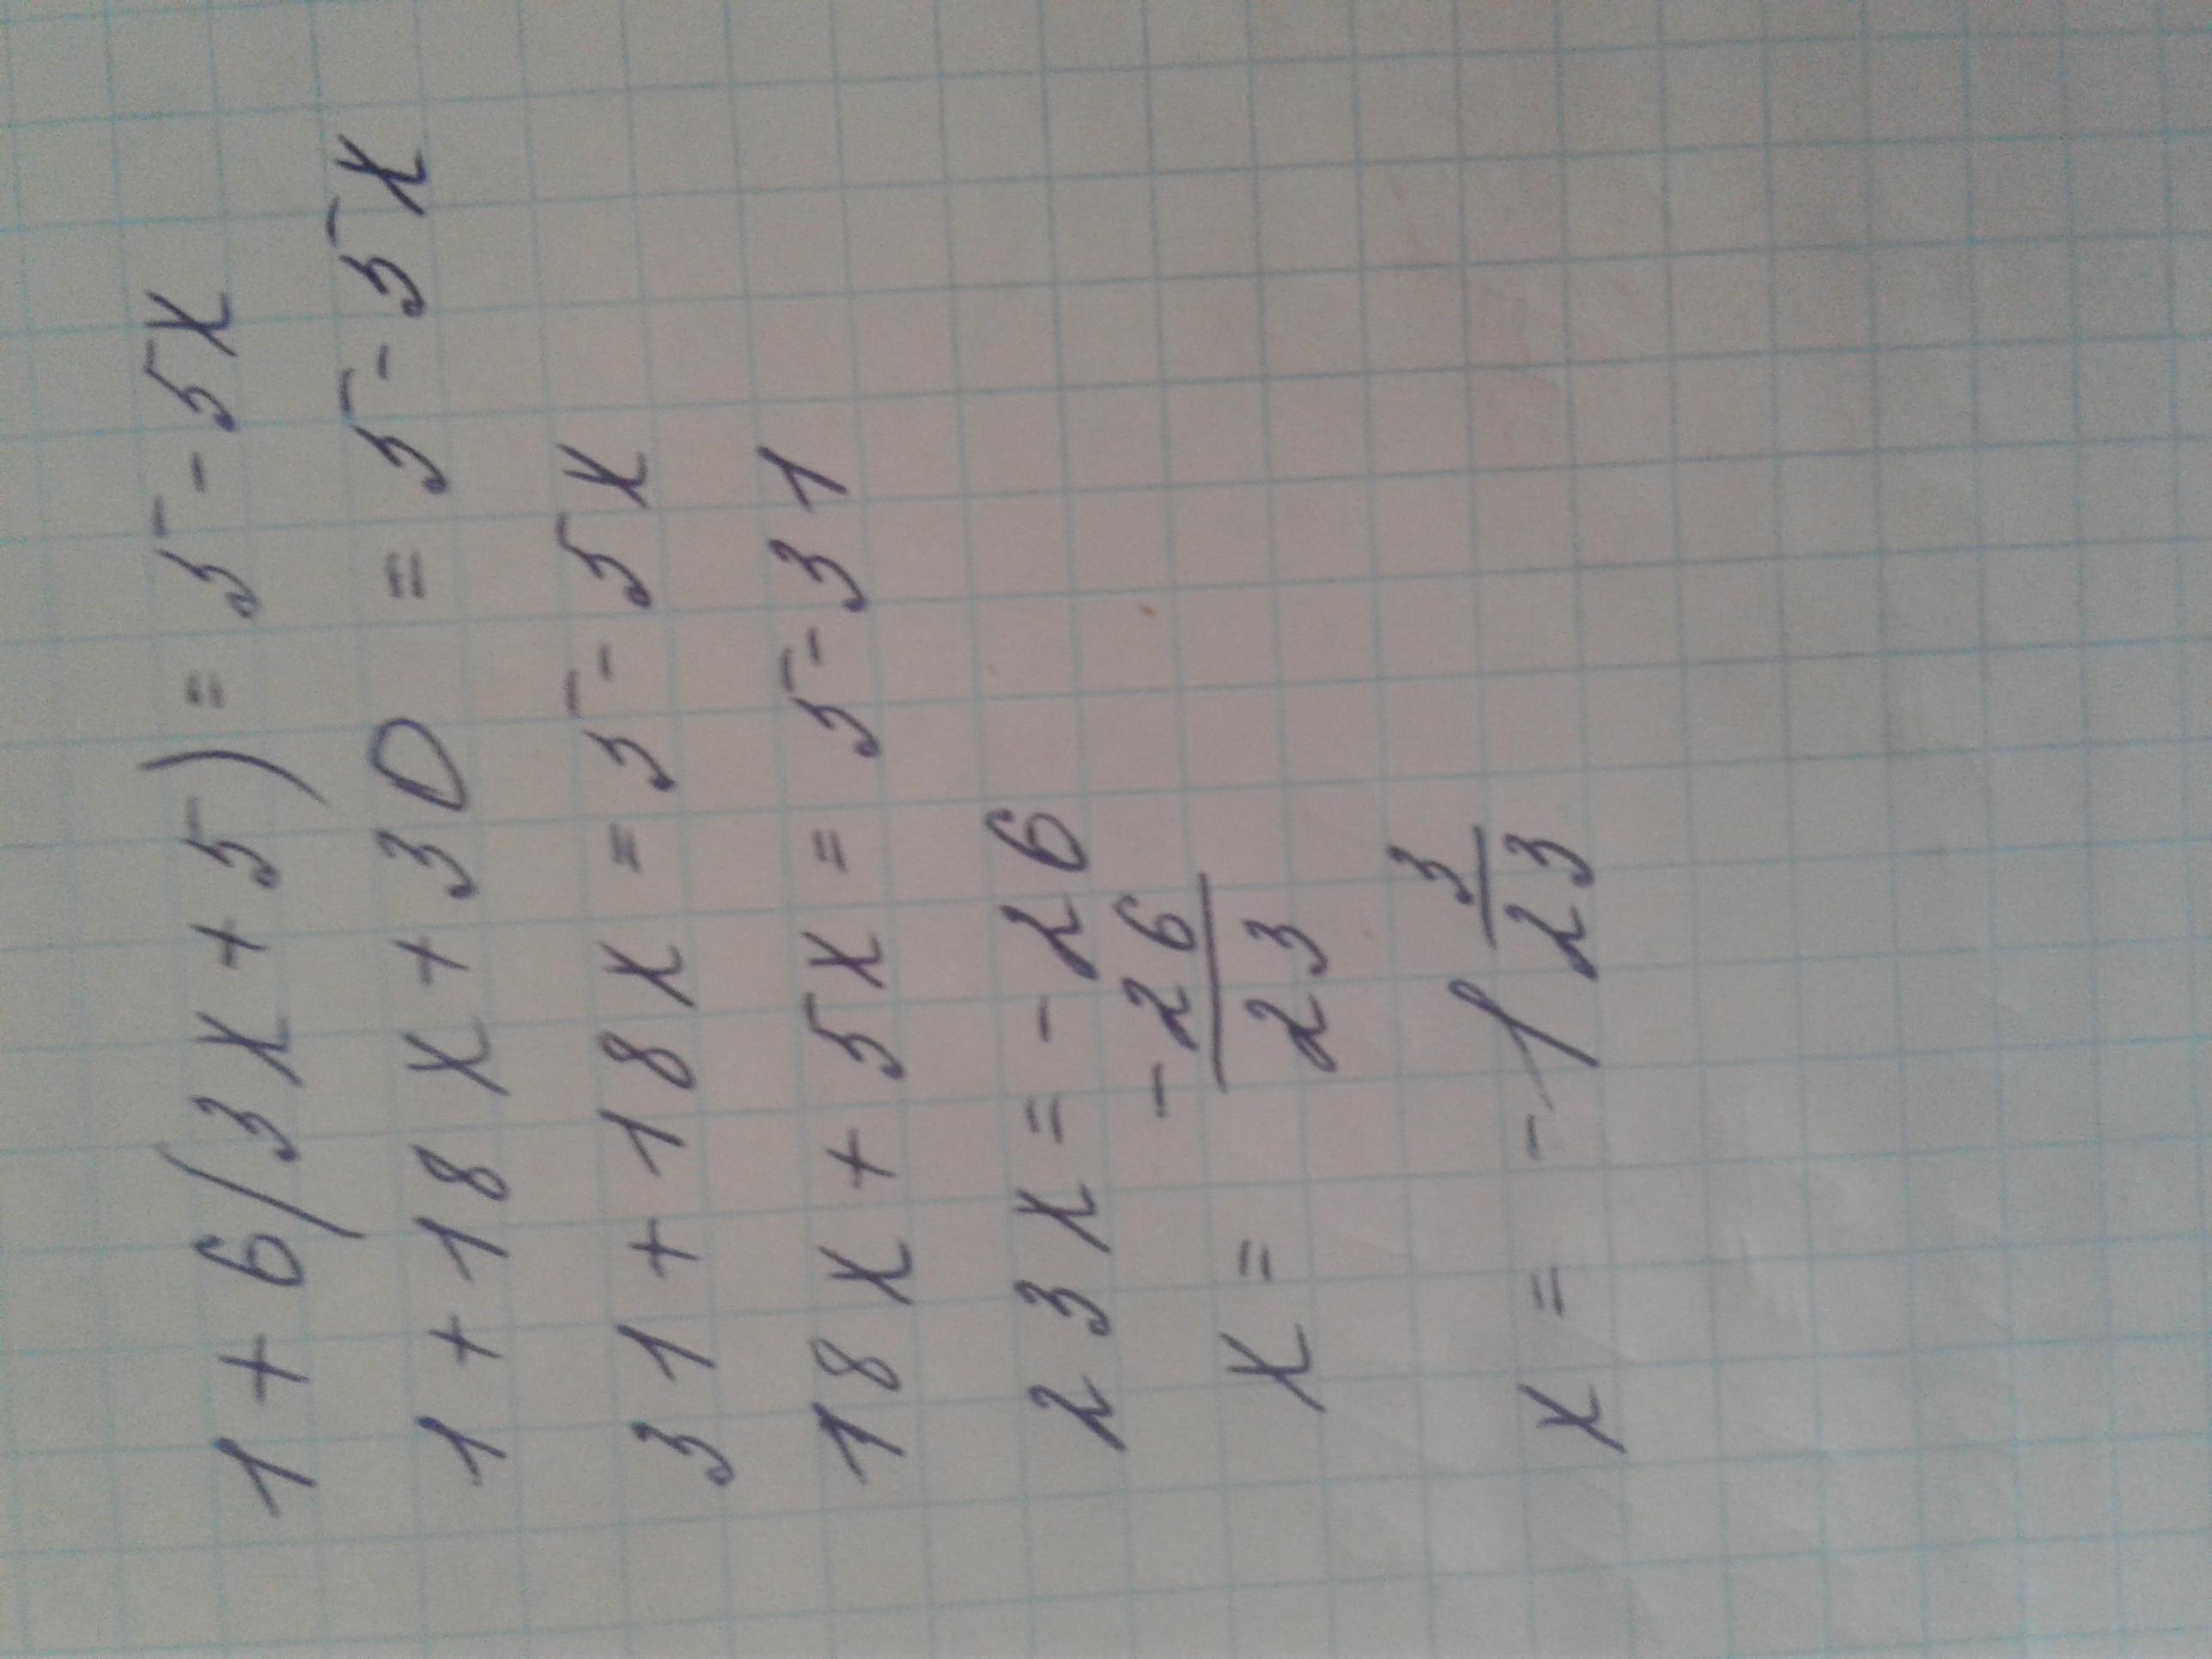 1 + 6(3x + 5) = 5 - 5x
1 + 18x + 30 = 5 - 5x
31 + 18x = 5 - 5x
18x + 5x = 5 - 31
23x = -26
x = -26/23
x = -1 3/23